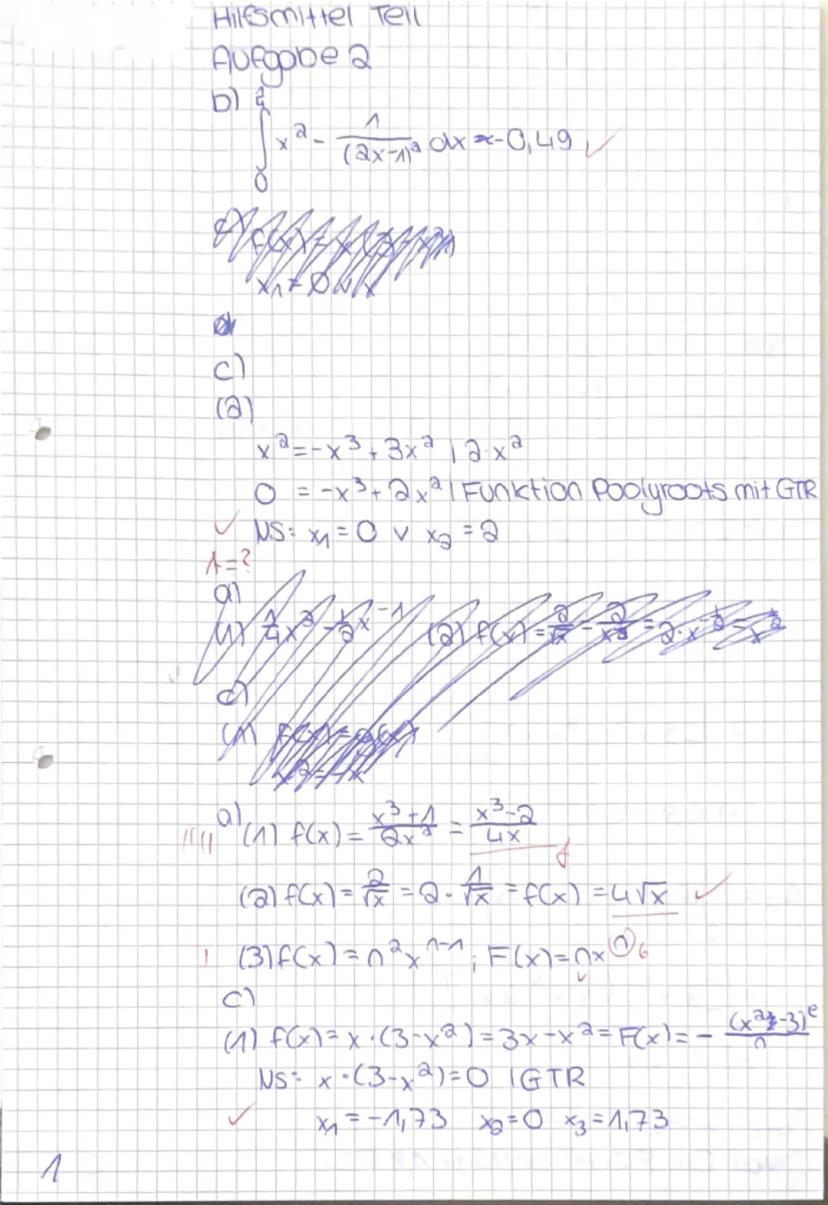 Hilfsmittel Teil
Aufgabe 2
b) ∫₀ x² - 1/(2x-1)² dx ≈ -0,49 ✓
c)
(2)
x² = -x³ + 3x² | 2·x²
0 = -x³ + 2x² | Funktion Poolyroots mit GTR
✓ NS: x₁ = 0 v x₂ = 2
A = ?
a)
(1) 1/4 x² - 1/2 x⁻¹ (2) f(x) = 2/√x
c)
a) (1) f(x) = (x³+1)/(2x²) = (x³-2)/(4x) f
(2) f(x) = 2/√x = 2 · 1/√x = f(x) = 4√x ✓
(3) f(x) = n²xⁿ⁻¹; F(x) = nxⁿ
c)
(1) f(x) = x·(3-x²) = 3x-x² = F(x) = -
NS: x·(3-x²) = 0 | GTR
✓ x₁ = -1,73 x₂ = 0 x₃ = 1,73
1